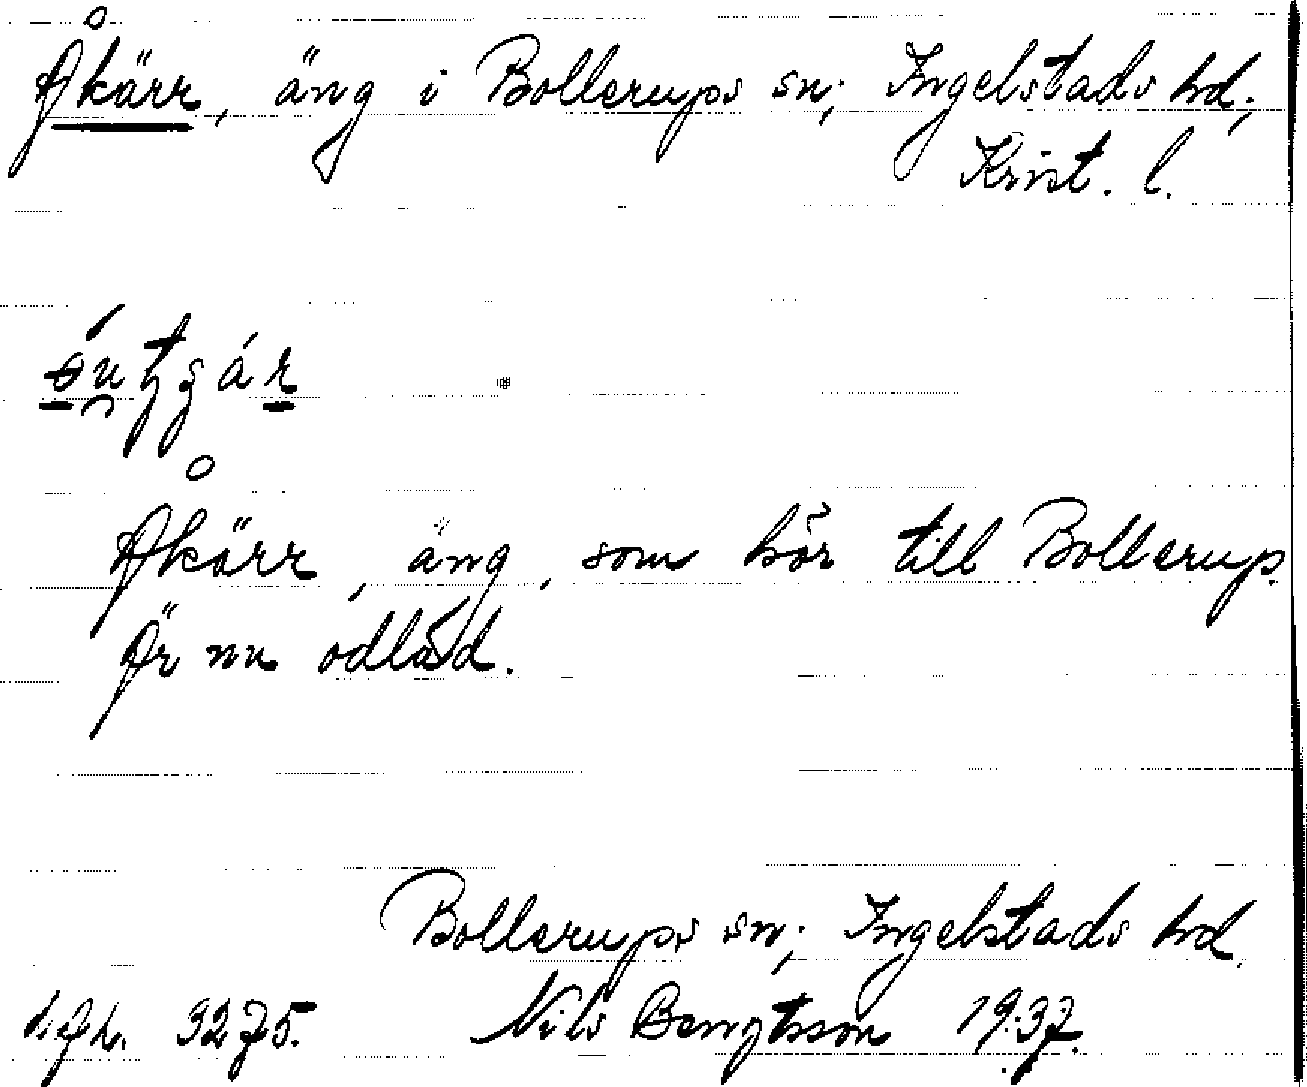 Åkärr, äng i Bollerups sn; Ingelstads hd;
Krist. l.
Åkärr, äng, som hör till Bollerup.
Är nu odlad.
Bollerups sn; Ingelstads hd.
3275. Nils Bengtsson 1937.